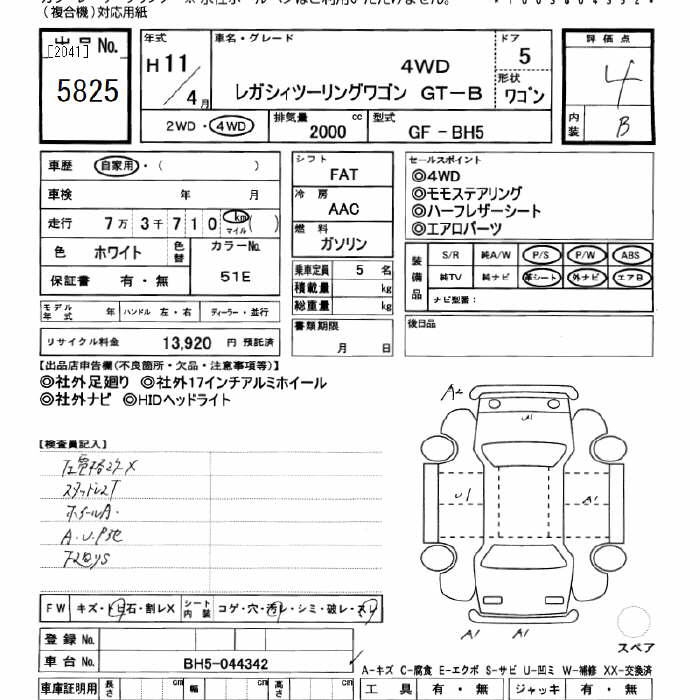 (複合機)対応用紙
出品No.
[2041]
5825
年式
H 11 / 4 月
車名・グレード
4WD
レガシィツーリングワゴン GT-B
ドア
5
形状
ワゴン
評価点
4
内装
B
2WD・4WD
排気量
2000 cc
型式
GF - BH5
車歴 自家用・( )
車検 年 月
走行 7万 3千 7 1 0 km マイル ( )
色 ホワイト 色替
カラーNo.
51E
保証書 有・無
モデル年式 年 ハンドル 左・右 ディーラー・並行
リサイクル料金 13,920 円 預託済
シフト
FAT
冷房
AAC
燃料
ガソリン
乗車定員 5 名
積載量 kg
総重量 kg
書類期限
月 日
セールスポイント
◎4WD
◎モモステアリング
◎ハーフレザーシート
◎エアロパーツ
装備品
S/R 純A/W P/S P/W ABS
純TV 純ナビ 革シート 外ナビ エアB
ナビ型番:
後日品
【出品店申告欄(不良箇所・欠品・注意事項等)】
◎社外足廻り ◎社外17インチアルミホイール
◎社外ナビ ◎HIDヘッドライト
【検査員記入】
スタッドレスT
ホイールA.
A.U.P他
A2
U1
U1
A1
A1
A1
FW キズ・トビ石・割レX シート内装 コゲ・穴・汚レ・シミ・破レ・スレ
登録No.
車台No. BH5-044342
スペア
A-キズ C-腐食 E-エクボ S-サビ U-凹ミ W-補修 XX-交換済
車庫証明用 長さ cm 幅 cm 高さ cm
工具 有・無 ジャッキ 有・無